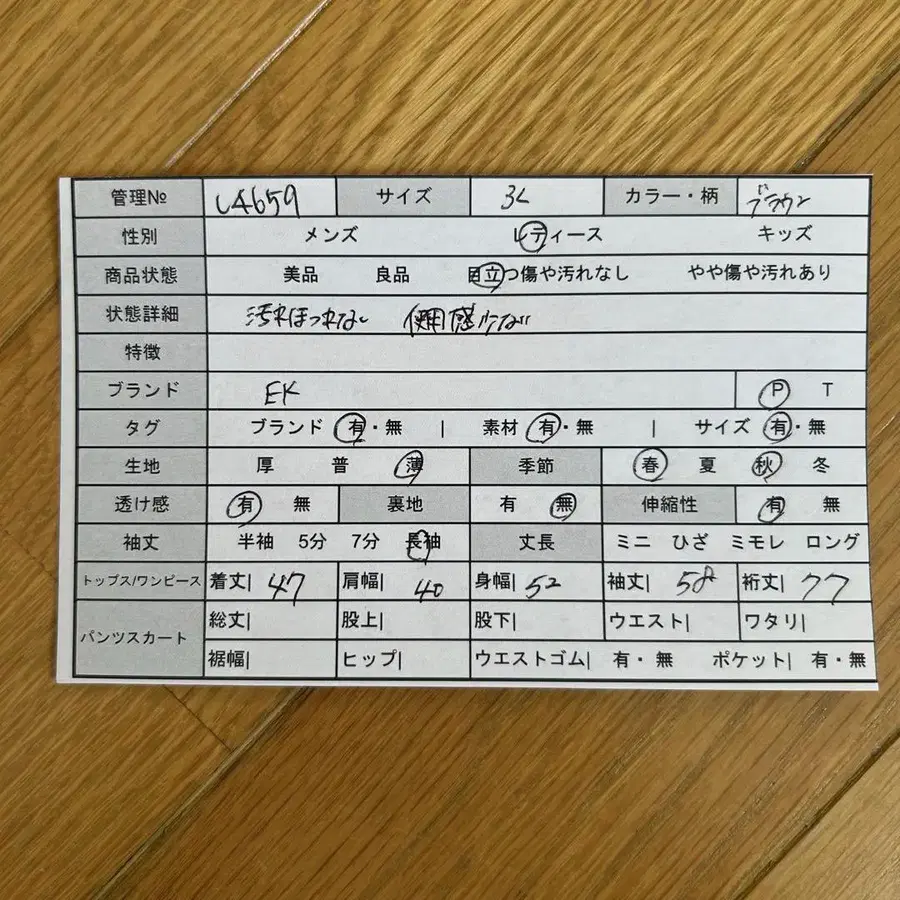 管理№ L4659 サイズ 3L カラー・柄 ブラウン
性別 メンズ レディース キッズ
商品状態 美品 良品 目立つ傷や汚れなし やや傷や汚れあり
状態詳細 汚れほつれなし 使用感少ない
特徴
ブランド EK P T
タグ ブランド 有・無 | 素材 有・無 | サイズ 有・無
生地 厚 普 薄 季節 春 夏 秋 冬
透け感 有 無 裏地 有 無 伸縮性 有 無
袖丈 半袖 5分 7分 長袖 丈長 ミニ ひざ ミモレ ロング
トップス/ワンピース 着丈| 47 肩幅| 40 身幅| 52 袖丈| 58 裄丈| 77
パンツスカート 総丈| 股上| 股下| ウエスト| ワタリ|
裾幅| ヒップ| ウエストゴム| 有・無 ポケット| 有・無